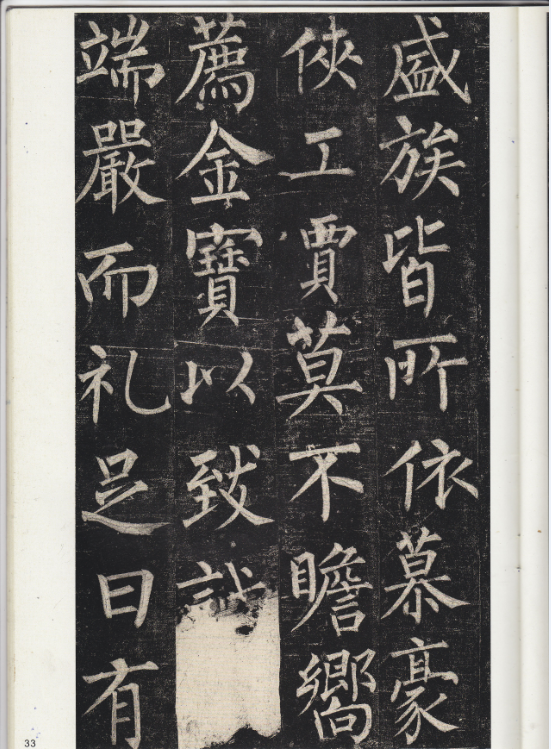 盛族皆所依慕豪
俠工賈莫不瞻嚮
薦金寶以致誠
端嚴而礼足日有
33